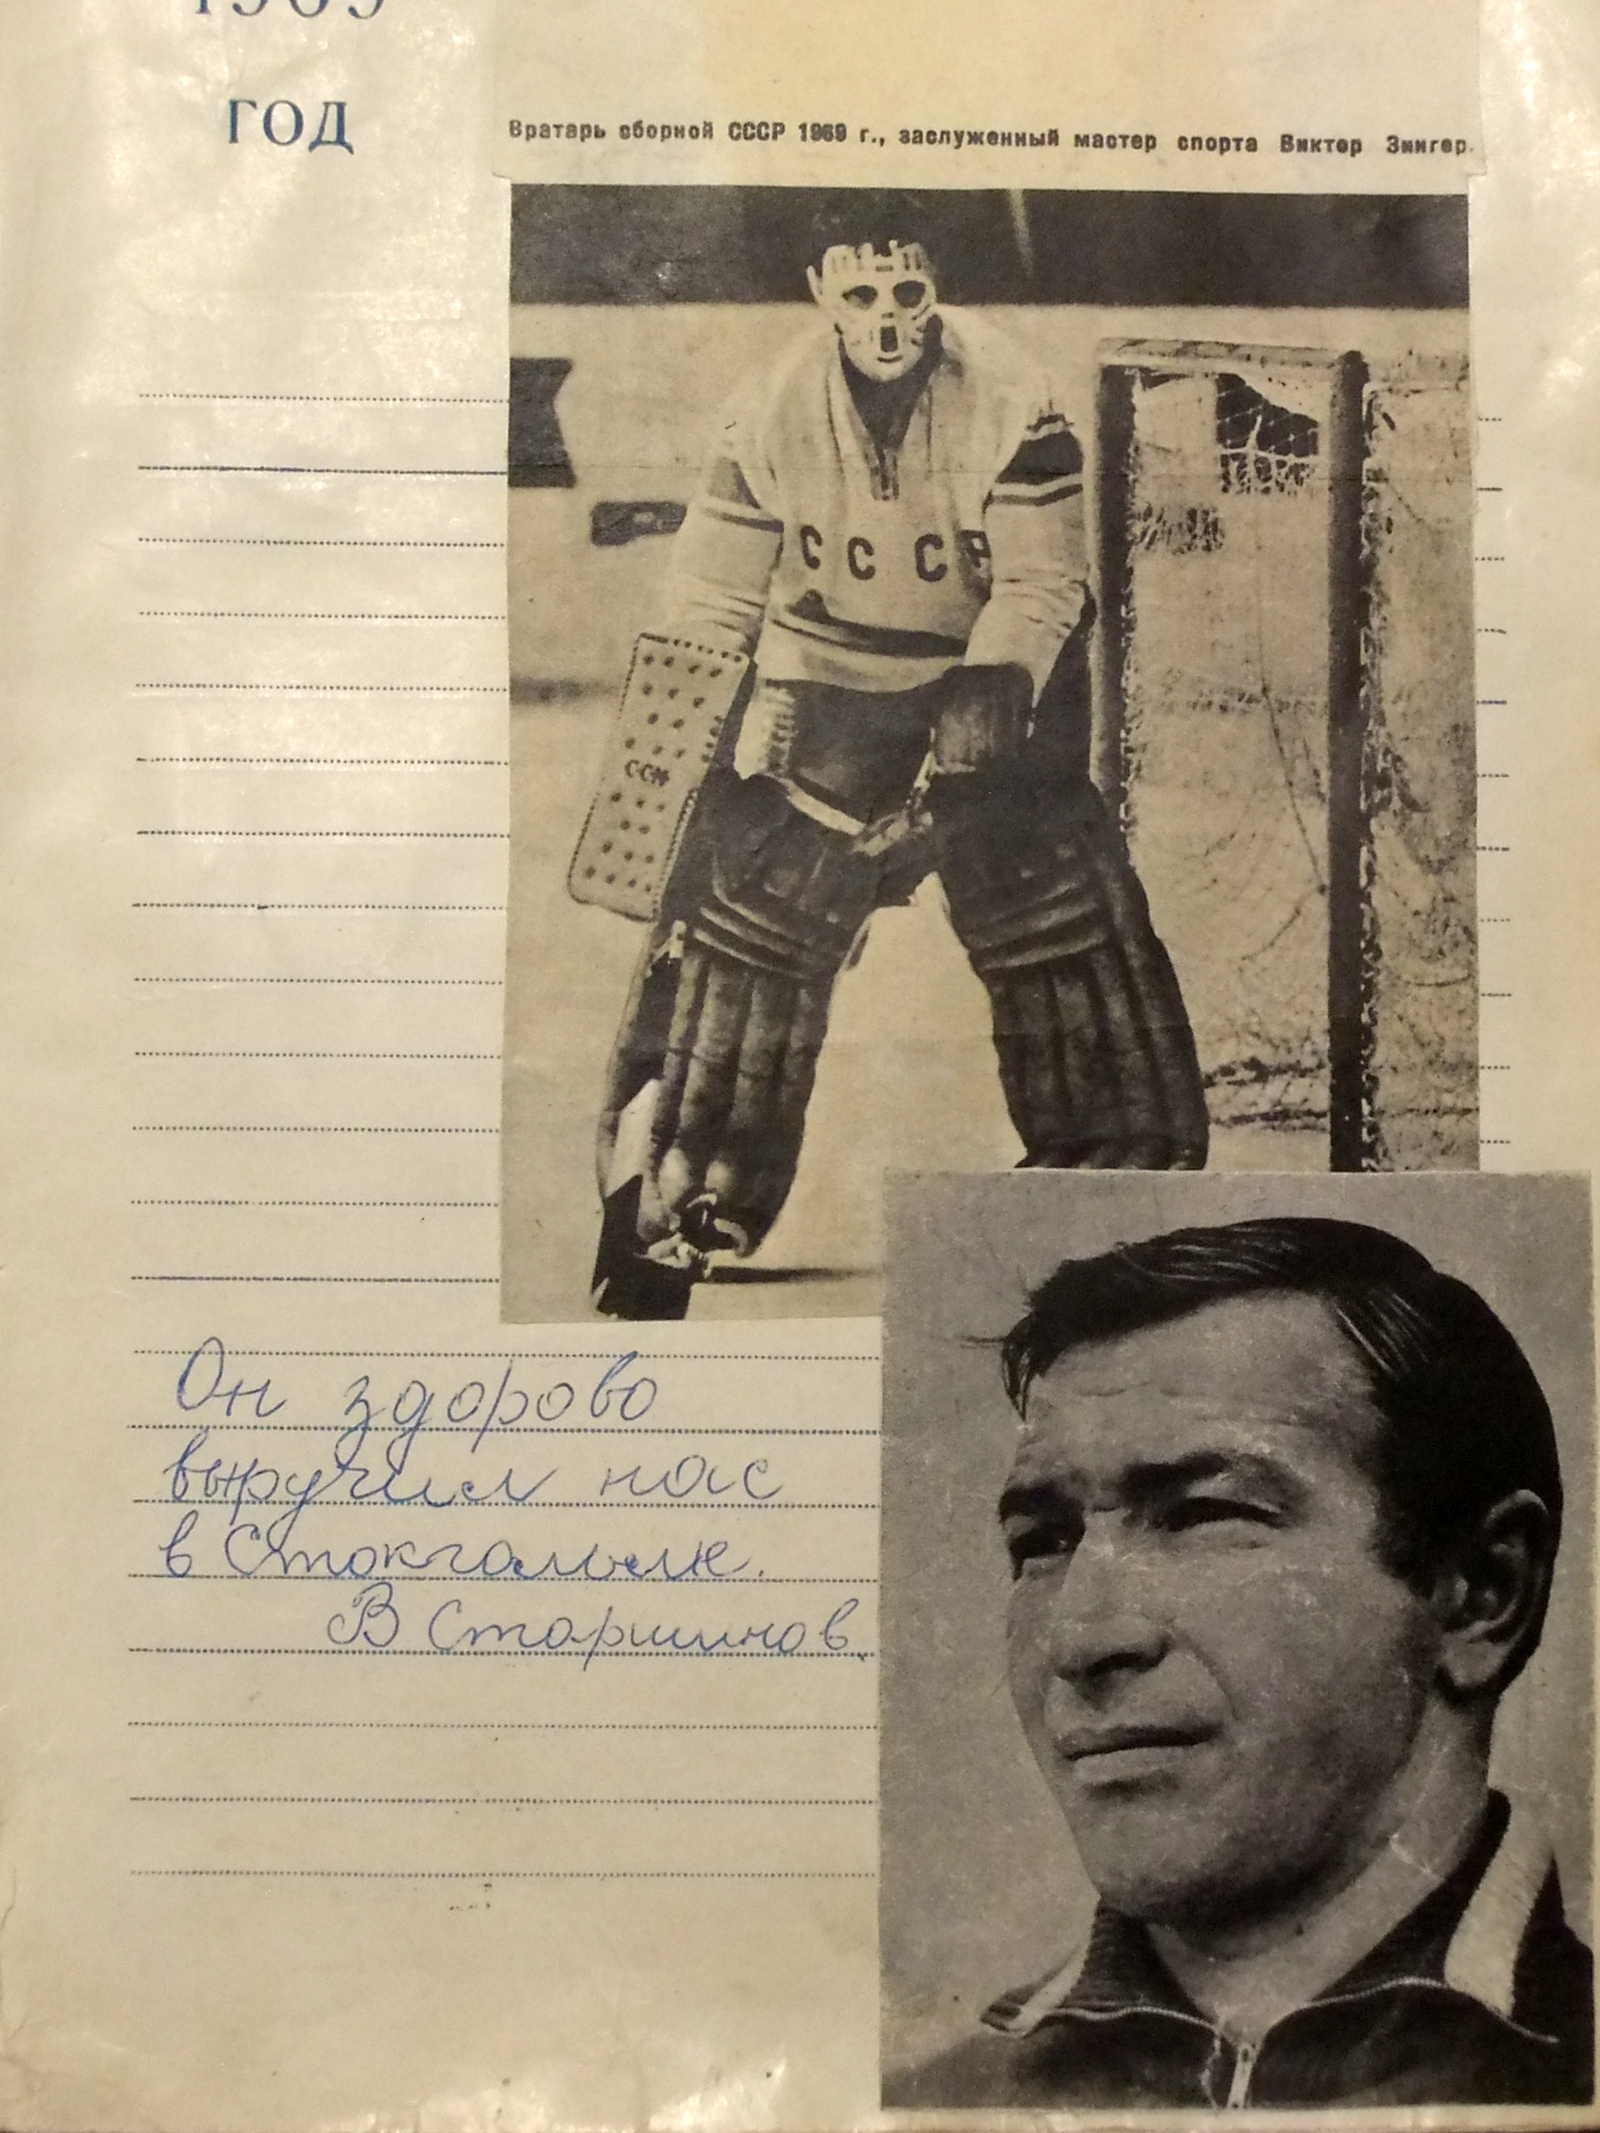 1969
ГОД
Вратарь сборной СССР 1969 г., заслуженный мастер спорта Виктор Зингер.
СССР
CCM
Он здорово
выручил нас
в Стокгольме.
В Старшинов.